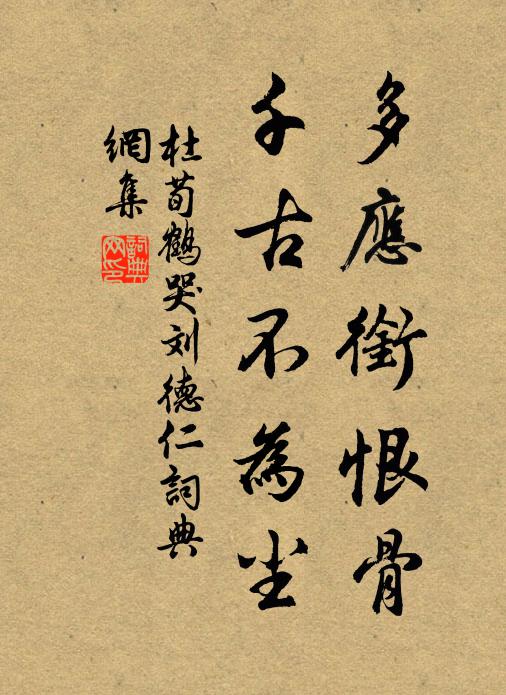 多應銜恨骨
千古不為尘
杜荀鶴哭刘德仁詞典
網集
詞典
网印